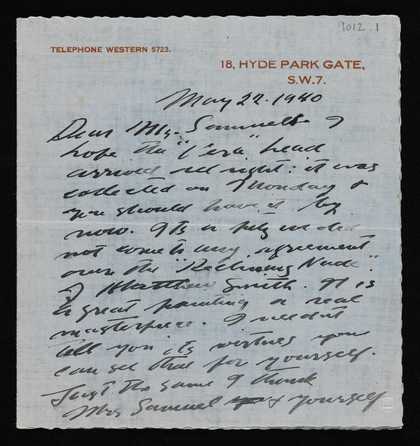 1012.1
TELEPHONE WESTERN 5723.
18, HYDE PARK GATE,
S.W.7.
May 22. 1940
Dear Mrs. Samuels I
hope the "Vera" head
arrived all right: it was
collected on Monday &
you should have it by
now. Its a pity we did
not come to any agreement
over the "Reclining Nude".
of Matthew Smith. It is
a great painting a real
masterpiece. I needn't
tell you its virtues you
can see that for yourself.
Just the same I think
Mrs Samuel & yourself